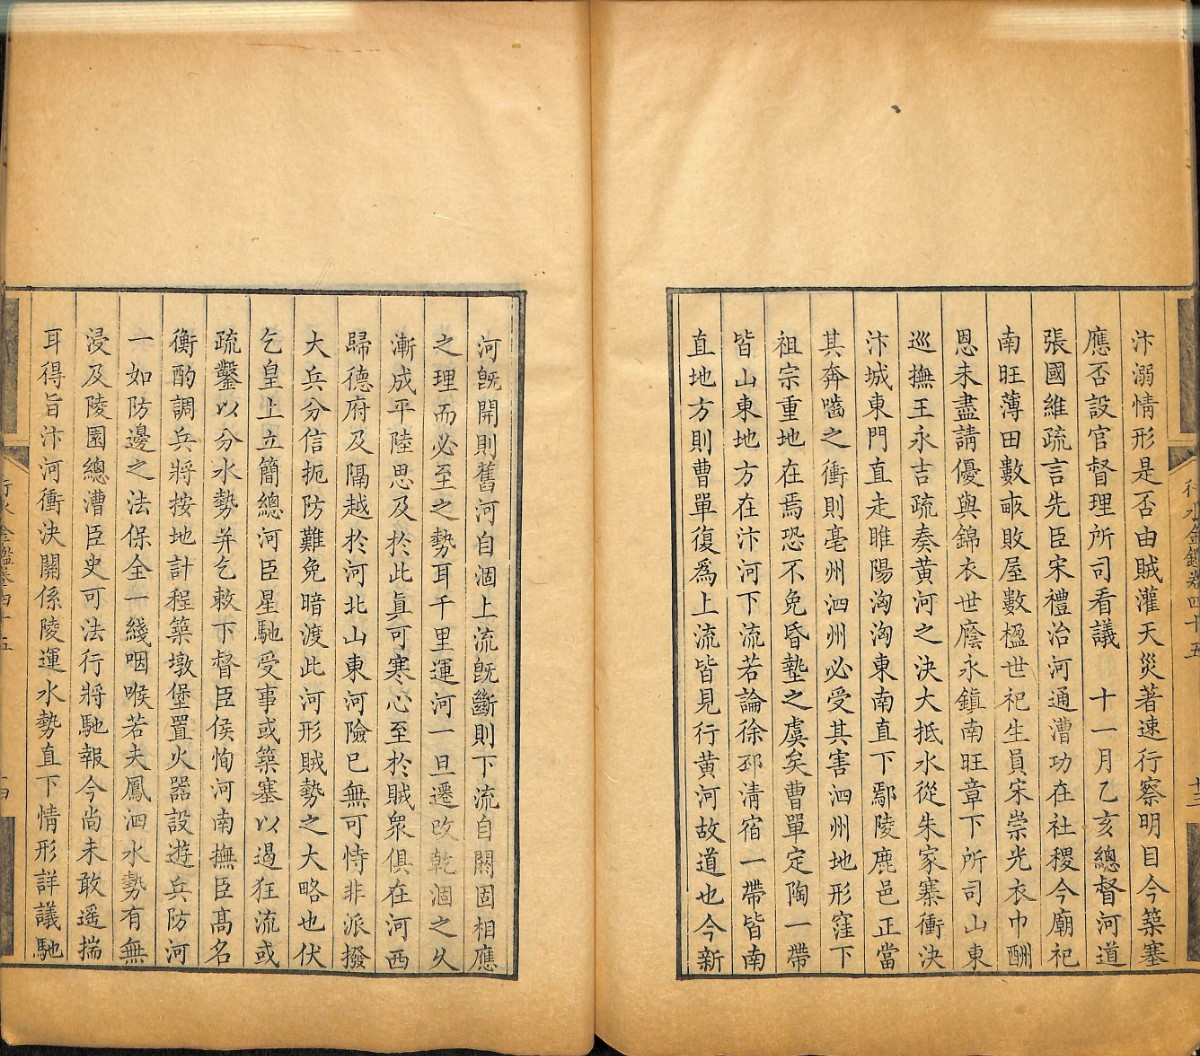 汴溺情形是否由賊灌天災著速行察明目今築塞
應否設官督理所司看議　十一月乙亥總督河道
張國維疏言先臣宋禮治河通漕功在社稷今廟祀
南旺薄田數畝敗屋數楹世祀生員宋崇光衣巾酬
恩未盡請優與錦衣世廕永鎮南旺章下所司山東
巡撫王永吉疏奏黄河之決大抵水從朱家寨衝決
汴城東門直走睢陽淘淘東南直下鄢陵鹿邑正當
其奔嚙之衝則亳州泗州必受其害泗州地形窪下
祖宗重地在焉恐不免昏墊之虞矣曹單定陶一帶
皆山東地方在汴河下流若論徐邳淸宿一帶皆南
直地方則曹單復爲上流皆見行黄河故道也今新
行水金鑑卷四十五
十三
河旣開則舊河自涸上流旣斷則下流自關固相應
之理而必至之勢耳千里運河一旦遷改乾涸之久
漸成平陸思及於此眞可寒心至於賊衆俱在河西
歸德府及隔越於河北山東河險已無可恃非派撥
大兵分信扼防難免暗渡此河形賊勢之大略也伏
乞皇上立簡總河臣星馳受事或築塞以遏狂流或
疏鑿以分水勢并乞敕下督臣侯恂河南撫臣髙名
衡酌調兵將按地計程築墩堡置火器設遊兵防河
一如防邊之法保全一綫咽喉若夫鳳泗水勢有無
浸及陵園總漕臣史可法行將馳報今尚未敢遥揣
耳得旨汴河衝決關係陵運水勢直下情形詳議馳
行水金鑑卷四十五
十四